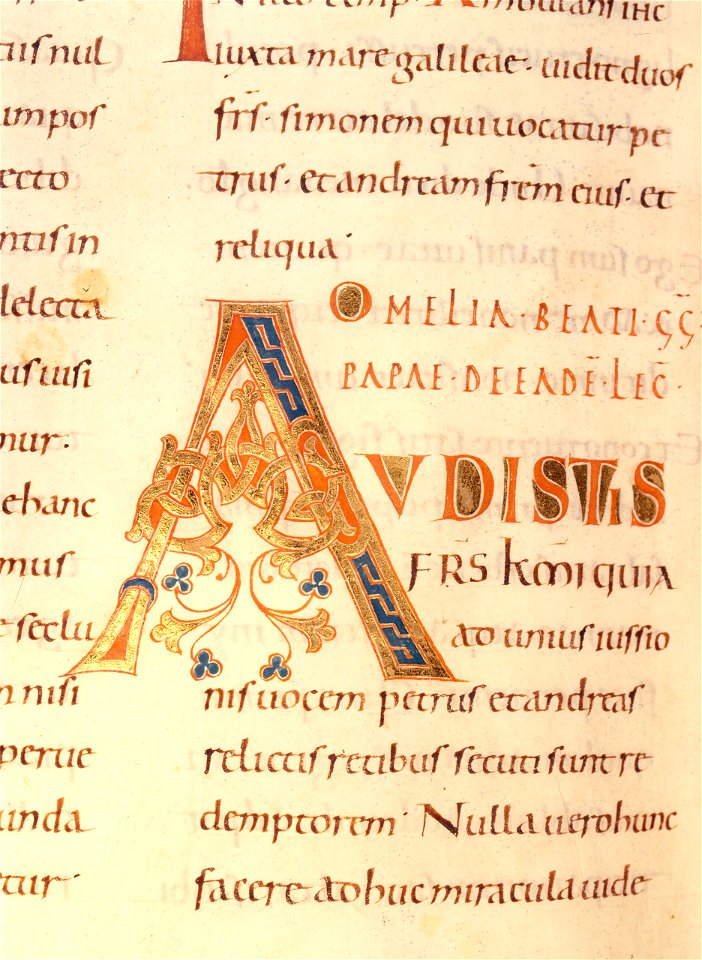 tuisnul
umpos
ecto
ntis in
lelecta
us uisi
mur·
ehanc
mus
e seclu
n nisi
perue
unda
tur·
temp· Ambulans ihc
iuxta mare galileae· uidit duos
fr̄s· simonem qui uocatur pe
trus· et andream frēm eius· et
reliqua·
OMELIA· BEATI· GḠ·
PAPAE· DE EADĒ· LEC̄·
AVDISTIS
FR̄S km̄i quia
ad unius iussio
nis uocem petrus et andreas
relictis retibus secuti sunt re
demptorem· Nulla uero hunc
facere adhuc miracula uide